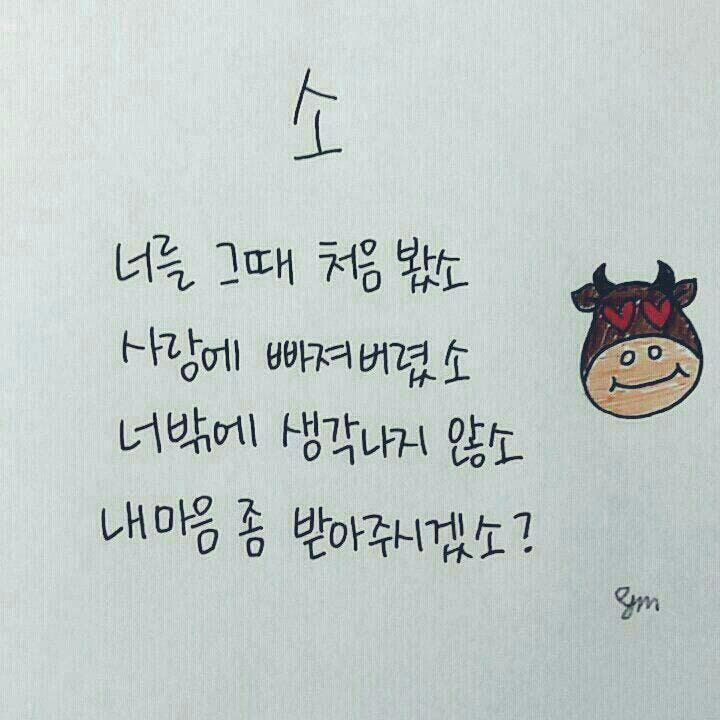 소
너를 그때 처음 봤소
사랑에 빠져버렸소
너밖에 생각나지 않소
내 마음 좀 받아주시겠소?